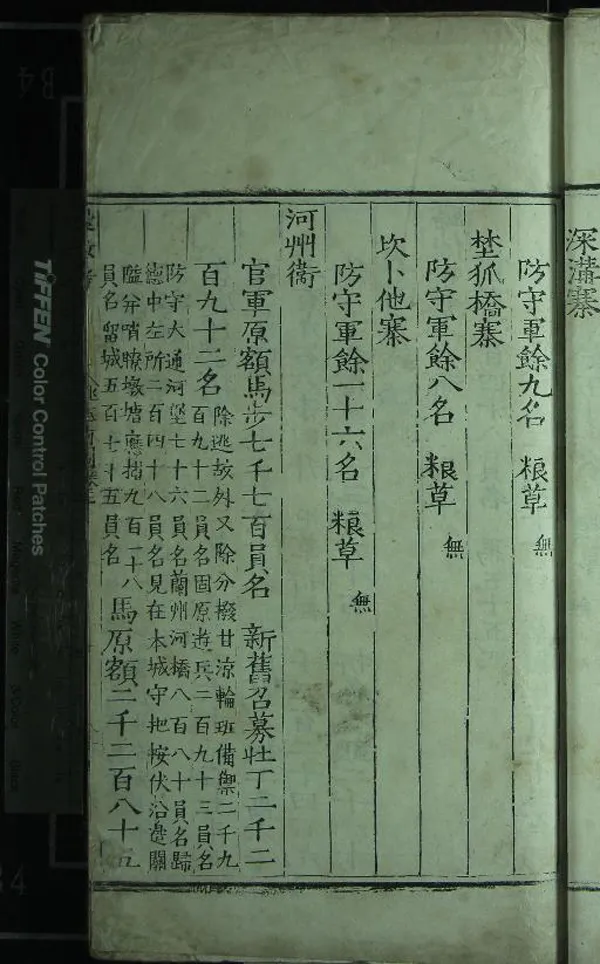 深溝寨
防守軍餘九名 粮草 無
埜狐橋寨
防守軍餘八名 粮草 無
坎卜他寨
防守軍餘一十六名 粮草 無
河州衞
官軍原額馬步七千七百員名 新舊召募壮丁二千二
百九十二名
除逃故外又除分撥甘凉輪班備禦二千九
百九十二員名固原遊兵二百九十三員名
防守大通河堡七十六員名蘭州河橋八百八十員名歸
德中左所二百四十八員名見在本城守把按伏沿邊關
隘并哨瞭墩塘應援九百一十八
員名留城五百七十五員名
馬原額二千二百八十五
TIFFEN Color Control Patches
B4